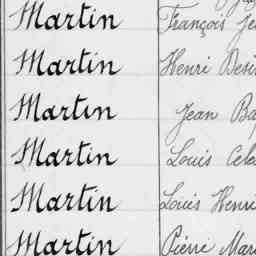 Martin François Je
Martin Henri Desi
Martin Jean Ba
Martin Louis Cele
Martin Louis Henri
Martin Pierre Mar